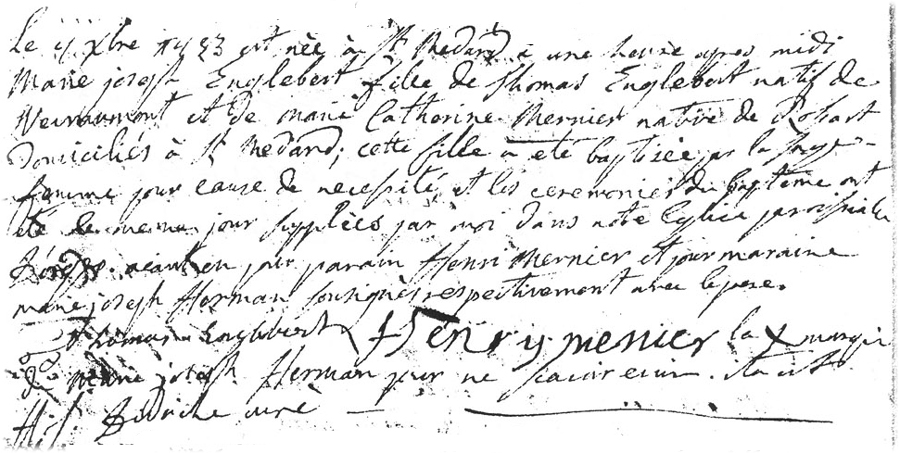 Le 4 Xbre 1783 est née à St Medard à une heure apres midi
Marie joseph Englebert fille de Thomas Englebert natif de
et de marie Catherine Mernier native de Rossart
Domiciliés à St Medard, cette fille a eté baptisée par la sage
femme pour cause de necessité et les ceremonies du baptême ont
été le meme jour supplées par moi dans notre Eglise paroissiale
aiant eu pour parain Henri Mernier et pour maraine
marie joseph Herman sousignés respectivement avec le pere.
Thomas Englebert Henry mernier la X marque
de marie joseph Herman pour ne scavoir ecrire
curé